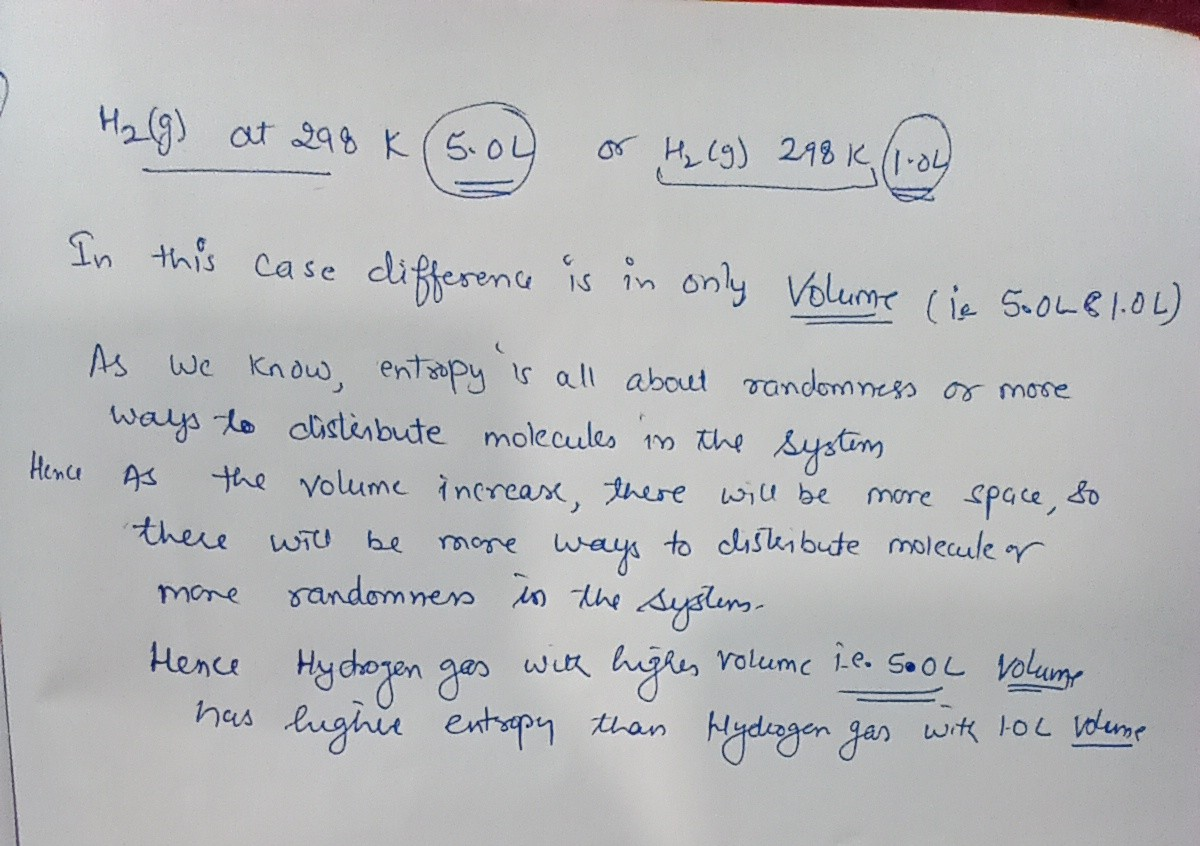 H₂(g) at 298 K 5.0L or H₂(g) 298 K, 1.0L
In this case difference is in only Volume (ie 5.0L & 1.0L)
As we know, entropy is all about randomness or more
ways to distribute molecules in the system
Hence As the volume increase, there will be more space, so
there will be more ways to distribute molecule or
more randomness in the system.
Hence Hydrogen gas with higher volume i.e. 5.0L Volume
has higher entropy than Hydrogen gas with 1.0L Volume